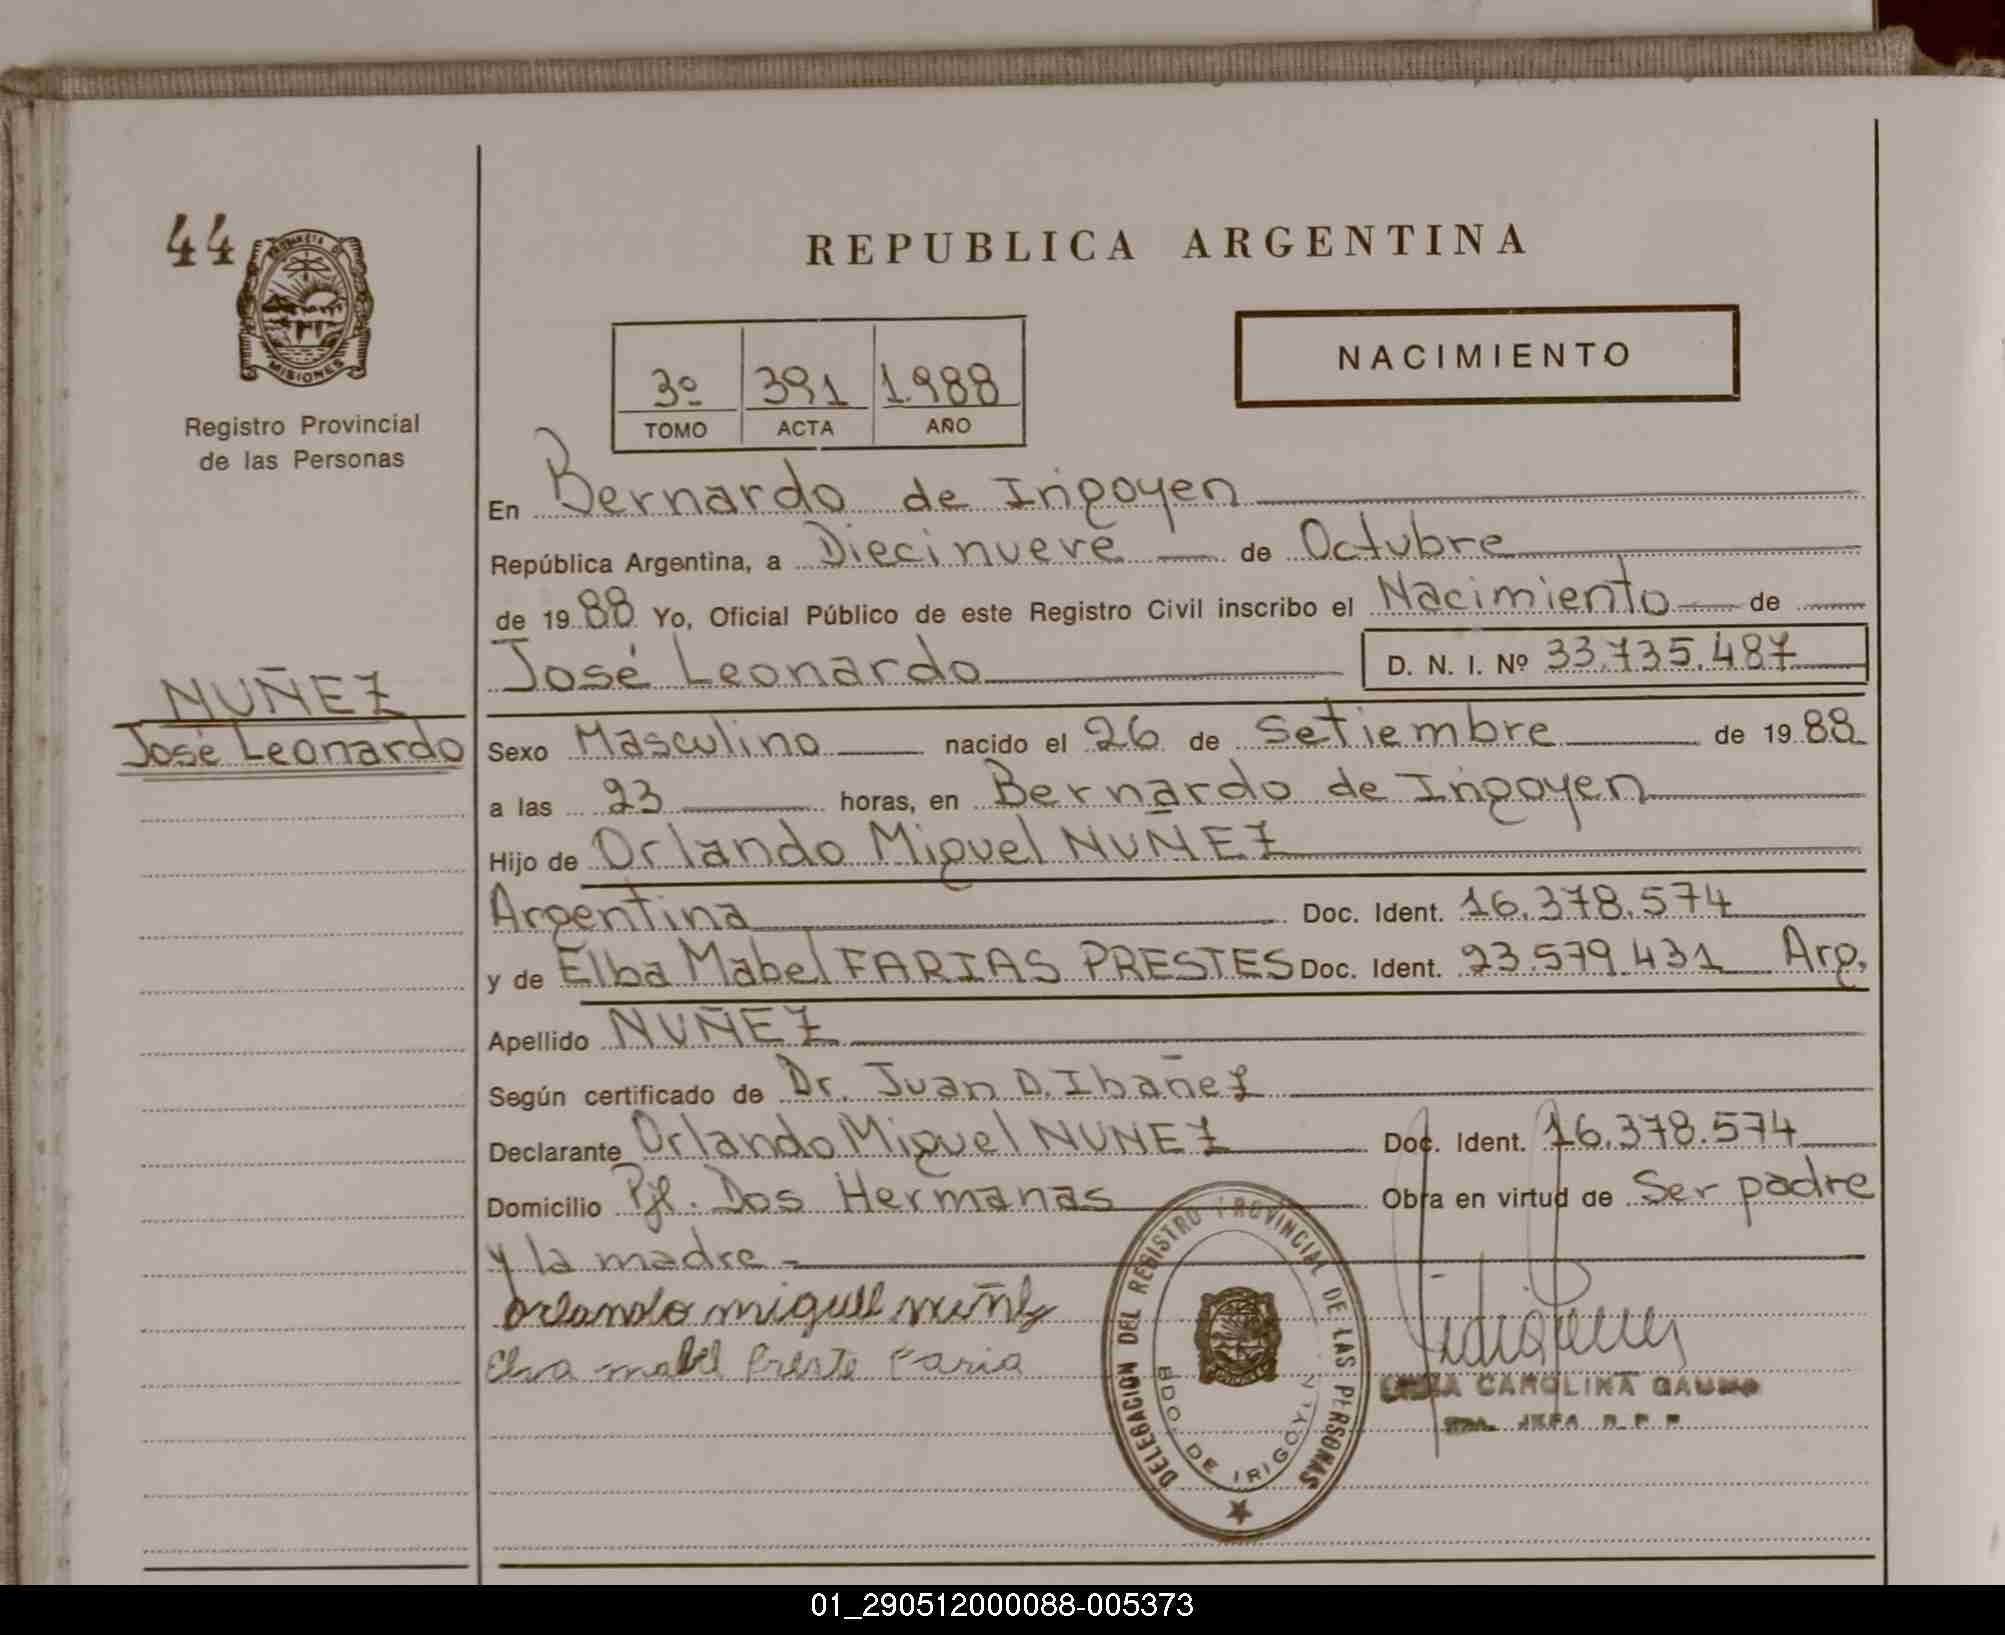 44
PROVINCIA DE
MISIONES
Registro Provincial
de las Personas
NUÑEZ
José Leonardo
REPUBLICA ARGENTINA
3º 391 1.988
TOMO ACTA AÑO
NACIMIENTO
En Bernardo de Irigoyen
República Argentina, a Diecinueve de Octubre
de 1988 Yo, Oficial Público de este Registro Civil inscribo el Nacimiento de
José Leonardo D. N. I. Nº 33.735.487
Sexo Masculino nacido el 26 de Setiembre de 1988
a las 23 horas, en Bernardo de Irigoyen
Hijo de Orlando Miguel NUÑEZ
Argentina Doc. Ident. 16.378.574
y de Elba Mabel FARIAS PRESTES Doc. Ident. 23.579.431 Arg.
Apellido NUÑEZ
Según certificado de Dr. Juan D. Ibañez
Declarante Orlando Miguel NUNEZ Doc. Ident. 16.378.574
Domicilio Pje. Dos Hermanas Obra en virtud de Ser padre
y la madre -
orlando miguel nuñez
Elva mabel Preste Faria
DELEGACION DEL REGISTRO PROVINCIAL DE LAS PERSONAS
BDO. DE IRIGOYEN
CAROLINA
JEFA R. P. P.
01_290512000088-005373